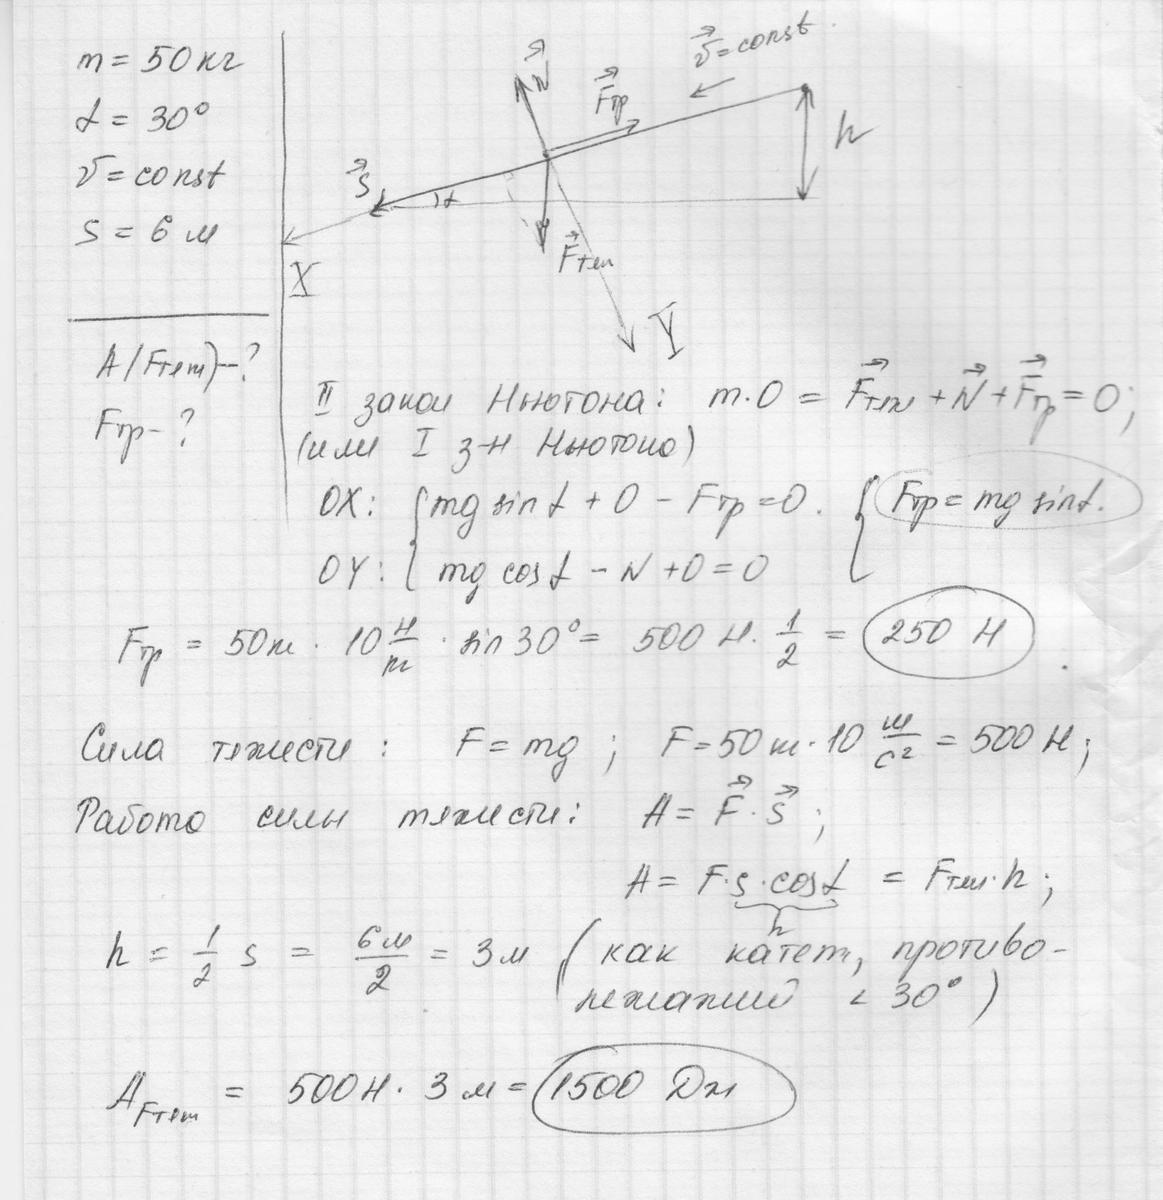 m = 50 кг
α = 30°
v = const
s = 6 м
A(Fтяж) - ?
Fтр - ?
N
Fтр
v = const
h
s
α
Fтяж
X
Y
II закон Ньютона: m·0 = Fтяж + N + Fтр = 0;
(или I з-н Ньютона)
OX: { mg sin α + 0 - Fтр = 0. { Fтр = mg sin α.
OY: { mg cos α - N + 0 = 0
Fтр = 50 кг · 10 Н/кг · sin 30° = 500 Н · 1/2 = 250 Н
Сила тяжести: F = mg; F = 50 кг · 10 м/с² = 500 Н;
Работа силы тяжести: A = F · s;
A = F·s·cos α = Fтяж·h;
h
h = 1/2 s = 6м/2 = 3 м (как катет, противо-
лежащий < 30°)
AFтяж = 500 Н · 3 м = 1500 Дж